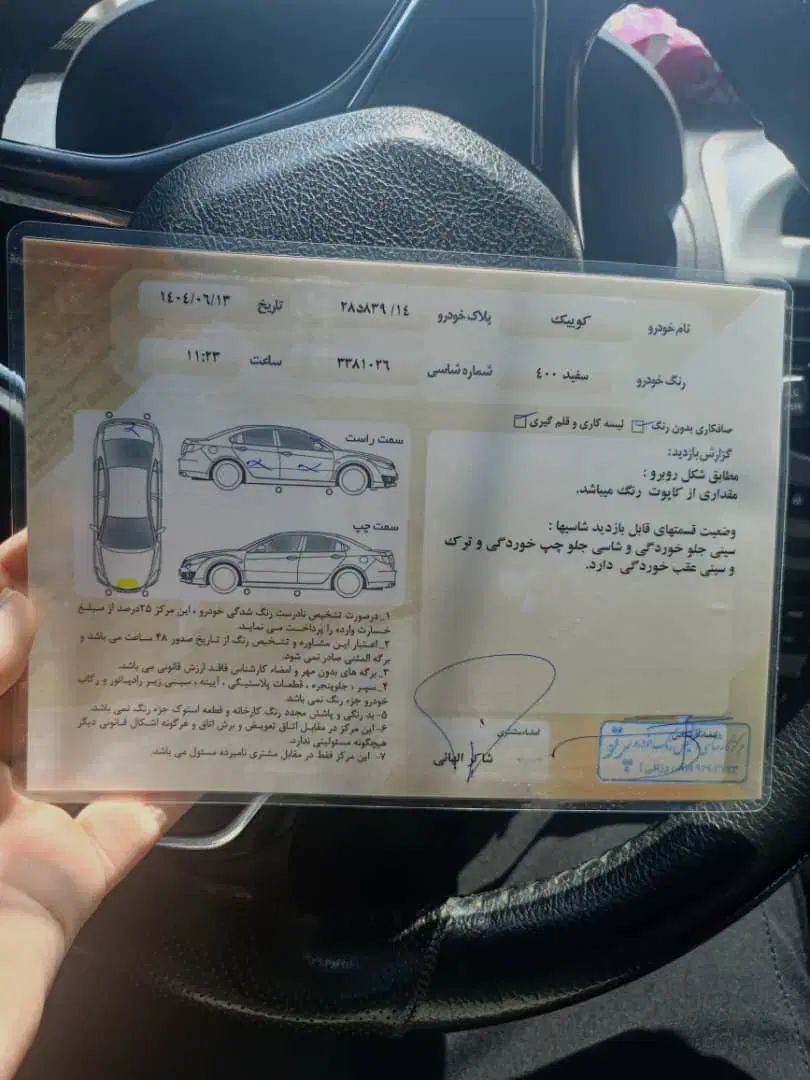 نام خودرو کوییک پلاک خودرو ۲۸۵۸۳۹ /۱۴ تاریخ ۱٤۰٤/۰٦/۱۳
رنگ خودرو سفید ۴۰۰ شماره شاسی ۳۳۸۱۰۳٦ ساعت ۱۱:۲۳
صافکاری بدون رنگ لیسه کاری و قلم گیری
گزارش بازدید:
مطابق شکل روبرو :
مقداری از کاپوت رنگ میباشد.
وضعیت قسمتهای قابل بازدید شاسیها :
سینی جلو خوردگی و شاسی جلو چپ خوردگی و ترک
و سینی عقب خوردگی دارد.
سمت راست
سمت چپ
۱_ درصورت تشخیص نادرست رنگ شدگی خودرو ، این مرکز ۲۵درصد از مبلغ
خسارت وارده را پرداخت می نماید.
۲_ اعتبار این مشاوره و تشخیص رنگ از تاریخ صدور ۴۸ ساعت می باشد و
برگه المثنی صادر نمی شود.
۳_ برگه های بدون مهر و امضاء کارشناس فاقد ارزش قانونی می باشد.
۴_ سپر ، جلوپنجره ، قطعات پلاستیکی ، آیینه ، سینی زیر رادیاتور و رکاب
خودرو جزء رنگ نمی باشد.
۵_ بد رنگی و پاشش مجدد رنگ کارخانه و قطعه استوک جزء رنگ نمی باشد.
۶_ این مرکز در مقابل اتاق تعویض و برش اتاق و هرگونه اشکال قانونی دیگر
هیچگونه مسئولیتی ندارد.
۷_ این مرکز فقط در مقابل مشتری نامبرده مسئول می باشد.
امضاء مشتری
شاکر الهائی